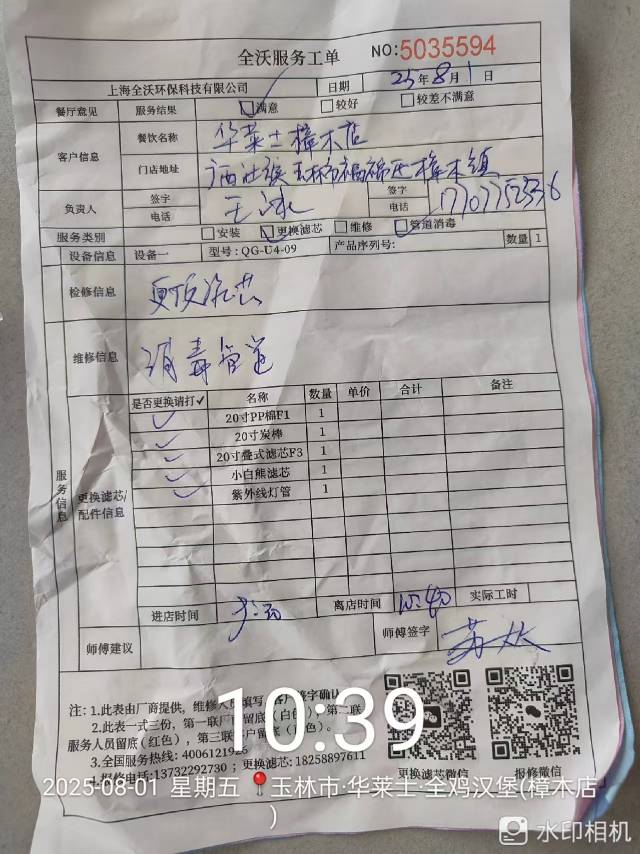 全沃服务工单 NO:5035594
上海全沃环保科技有限公司 日期 25年8月1日
餐厅意见 服务结果 满意 较好 较差不满意
客户信息 餐饮名称 华莱士樟木店
门店地址 广西壮族玉林市福绵区樟木镇
负责人 签字 王冰 签字
电话 电话 17707752336
服务类别 安装 更换滤芯 维修 管道消毒
设备信息 设备一 型号: QG-U4-09 产品序列号: 数量 1
检修信息 更换滤芯
维修信息 消毒管道
服务信息 更换滤芯/配件信息 是否更换请打✓ 名称 数量 单价 合计 备注
✓ 20寸PP棉F1 1
✓ 20寸炭棒 1
✓ 20寸叠式滤芯F3 1
✓ 小白熊滤芯 1
✓ 紫外线灯管 1
进店时间 离店时间 10:40 实际工时
师傅建议 师傅签字
注: 1.此表由厂商提供, 维修人员填写, 客户签字确认
2.此表一式三份, 第一联厂商留底(白色), 第二联
服务人员留底(红色), 第三联客户留底(蓝色)。
3.全国服务热线: 4006121926
4.报修电话:13732292730 ; 更换滤芯: 18258897611
更换滤芯微信 报修微信
10:39
2025-08-01 星期五 玉林市·华莱士·全鸡汉堡(樟木店
)
水印相机